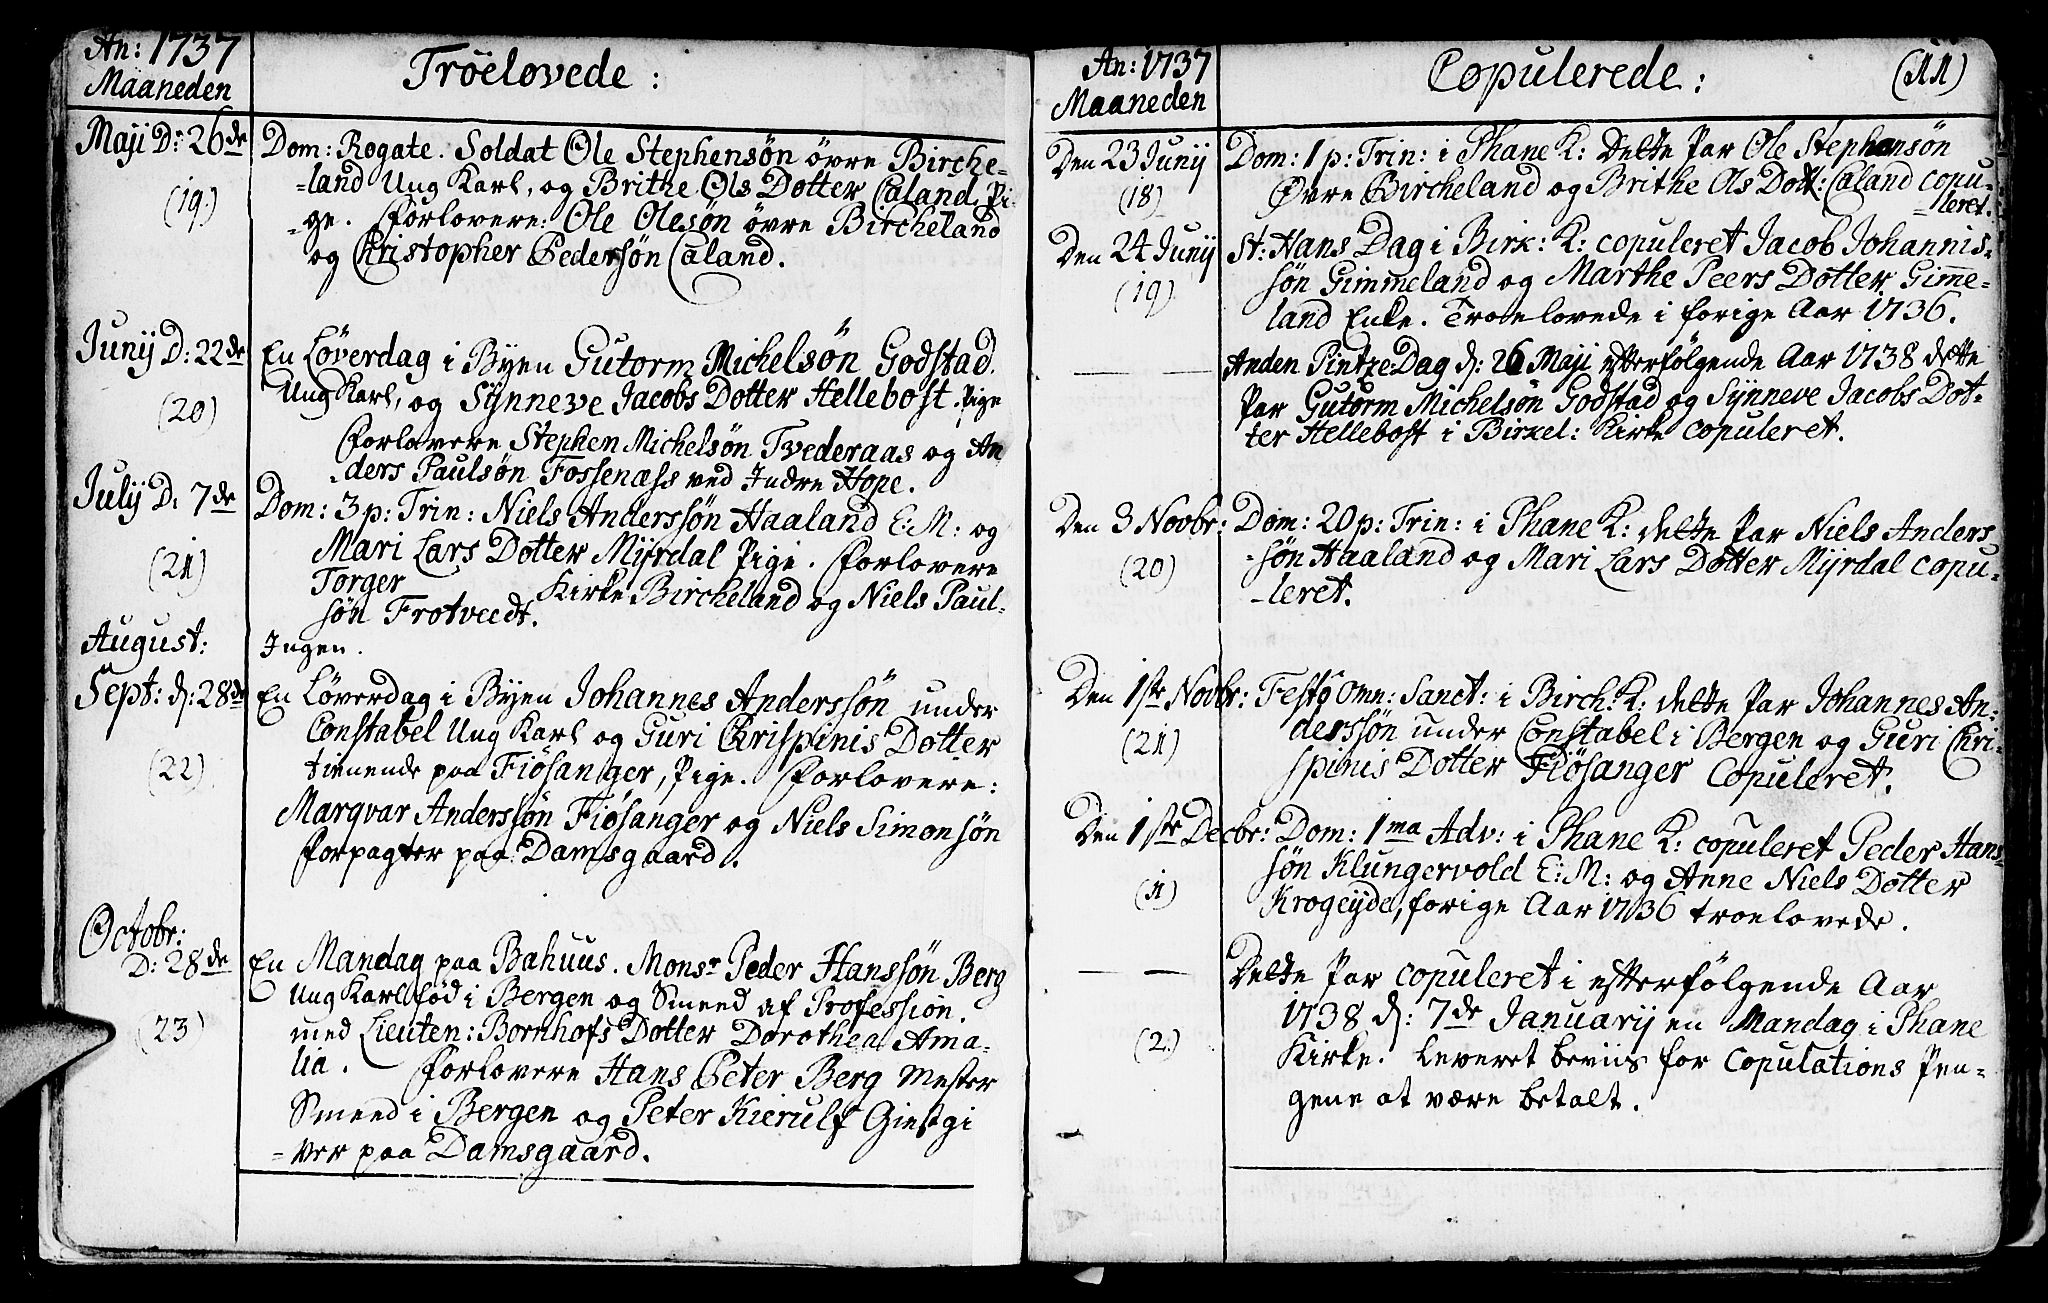 An: 1737
Maaneden
Tröelovede:
Maji D: 26de
(19.)
Dom: Rogate. Soldat Ole Stephensön övre Birche-
-land Ung Karl, og Brithe Ols Dotter Caland, Pi-
-ge. Forlovere: Ole Olesön övre Bircheland
og Christopher Pedersön Caland.
Junij D: 22de
(20)
En Löverdag i Byen Gutorm Michelsön Godstad.
Ung Karl, og Synneve Jacobs Dotter Hellebost. Pige
Forlovere Stephen Michelsön Tvederaas og An
-ders Paulsön Fossenæss ved Indre Hope.
Julij D: 7de
(21)
Dom: 3 p: Trin: Niels Anderssön Haaland E: M: og
Mari Lars Dotter Myrdal Pige. Forlovere
Torger Kirke Bircheland og Niels Paul-
sön Frotvedt.
August:
Ingen.
Sept: d: 28de
(22)
En Löverdag i Byen Johannes Anderssön under
Constabel Ung Karl og Guri Chrispinis Dotter
tienende paa Fiösanger, Pige. Forlovere:
Marqvar Anderssön Fiösanger og Niels Simonsön
Forpagter paa Damsgaard.
Octobr:
D: 28de
(23)
En Mandag paa Bahuus. Monsr Peder Hanssön Berg
Ung Karl föd i Bergen og Smeed af Profession.
med Lieuten: Bornhofs Dotter Dorothea Ama-
lia. Forlovere Hans Peter Berg Mester
Smeed i Bergen og Peter Kierulf Giestgi
-ver paa Damsgaard.
An: 1737
Maaneden
Copulerede:
(11)
Den 23 Junij
(18)
Dom: 1 p: Trin: i Phane K: dette Par Ole Stephansön
Övre Bircheland og Brithe Ols Dott: Caland copu-
-leret.
Den 24 Junij
(19)
St: Hans Dag i Birk: K: copuleret Jacob Johannis-
sön Gimmeland og Marthe Peers Dotter Gimme-
land Enke. Troelovede i forige Aar 1736.
Anden Pintze Dag d: 26 Maji efterfölgende Aar 1738 dette
Par Gutorm Michelsön Godstad og Synneve Jacobs Dot-
ter Hellebost i Birkel: Kirke copuleret.
Den 3 Novbr:
(20)
Dom: 20 p: Trin: i Phane K: dette Par Niels Anders
-sön Haaland og Mari Lars Dotter Myrdal copu-
-leret.
Den 1ste Novbr:
(21)
Festo Omn: Sanct: i Birch: K: dette Par Johannes An-
derssön under Constabel i Bergen og Guri Chri-
spinis Dotter Fiösanger Copuleret.
Den 1ste Decbr:
(1)
Dom: 1ma Adv: i Phane K: copuleret Peder Hans-
sön Klungervold E: M: og Anne Niels Dotter
Krogeyde, forige Aar 1736 troelovede.
(2.)
Dette Par copuleret i efterfölgende Aar
1738 d: 7de Januarij en Mandag i Phane
Kirke. Leveret beviis for Copulations Pen-
gene at være betalt.